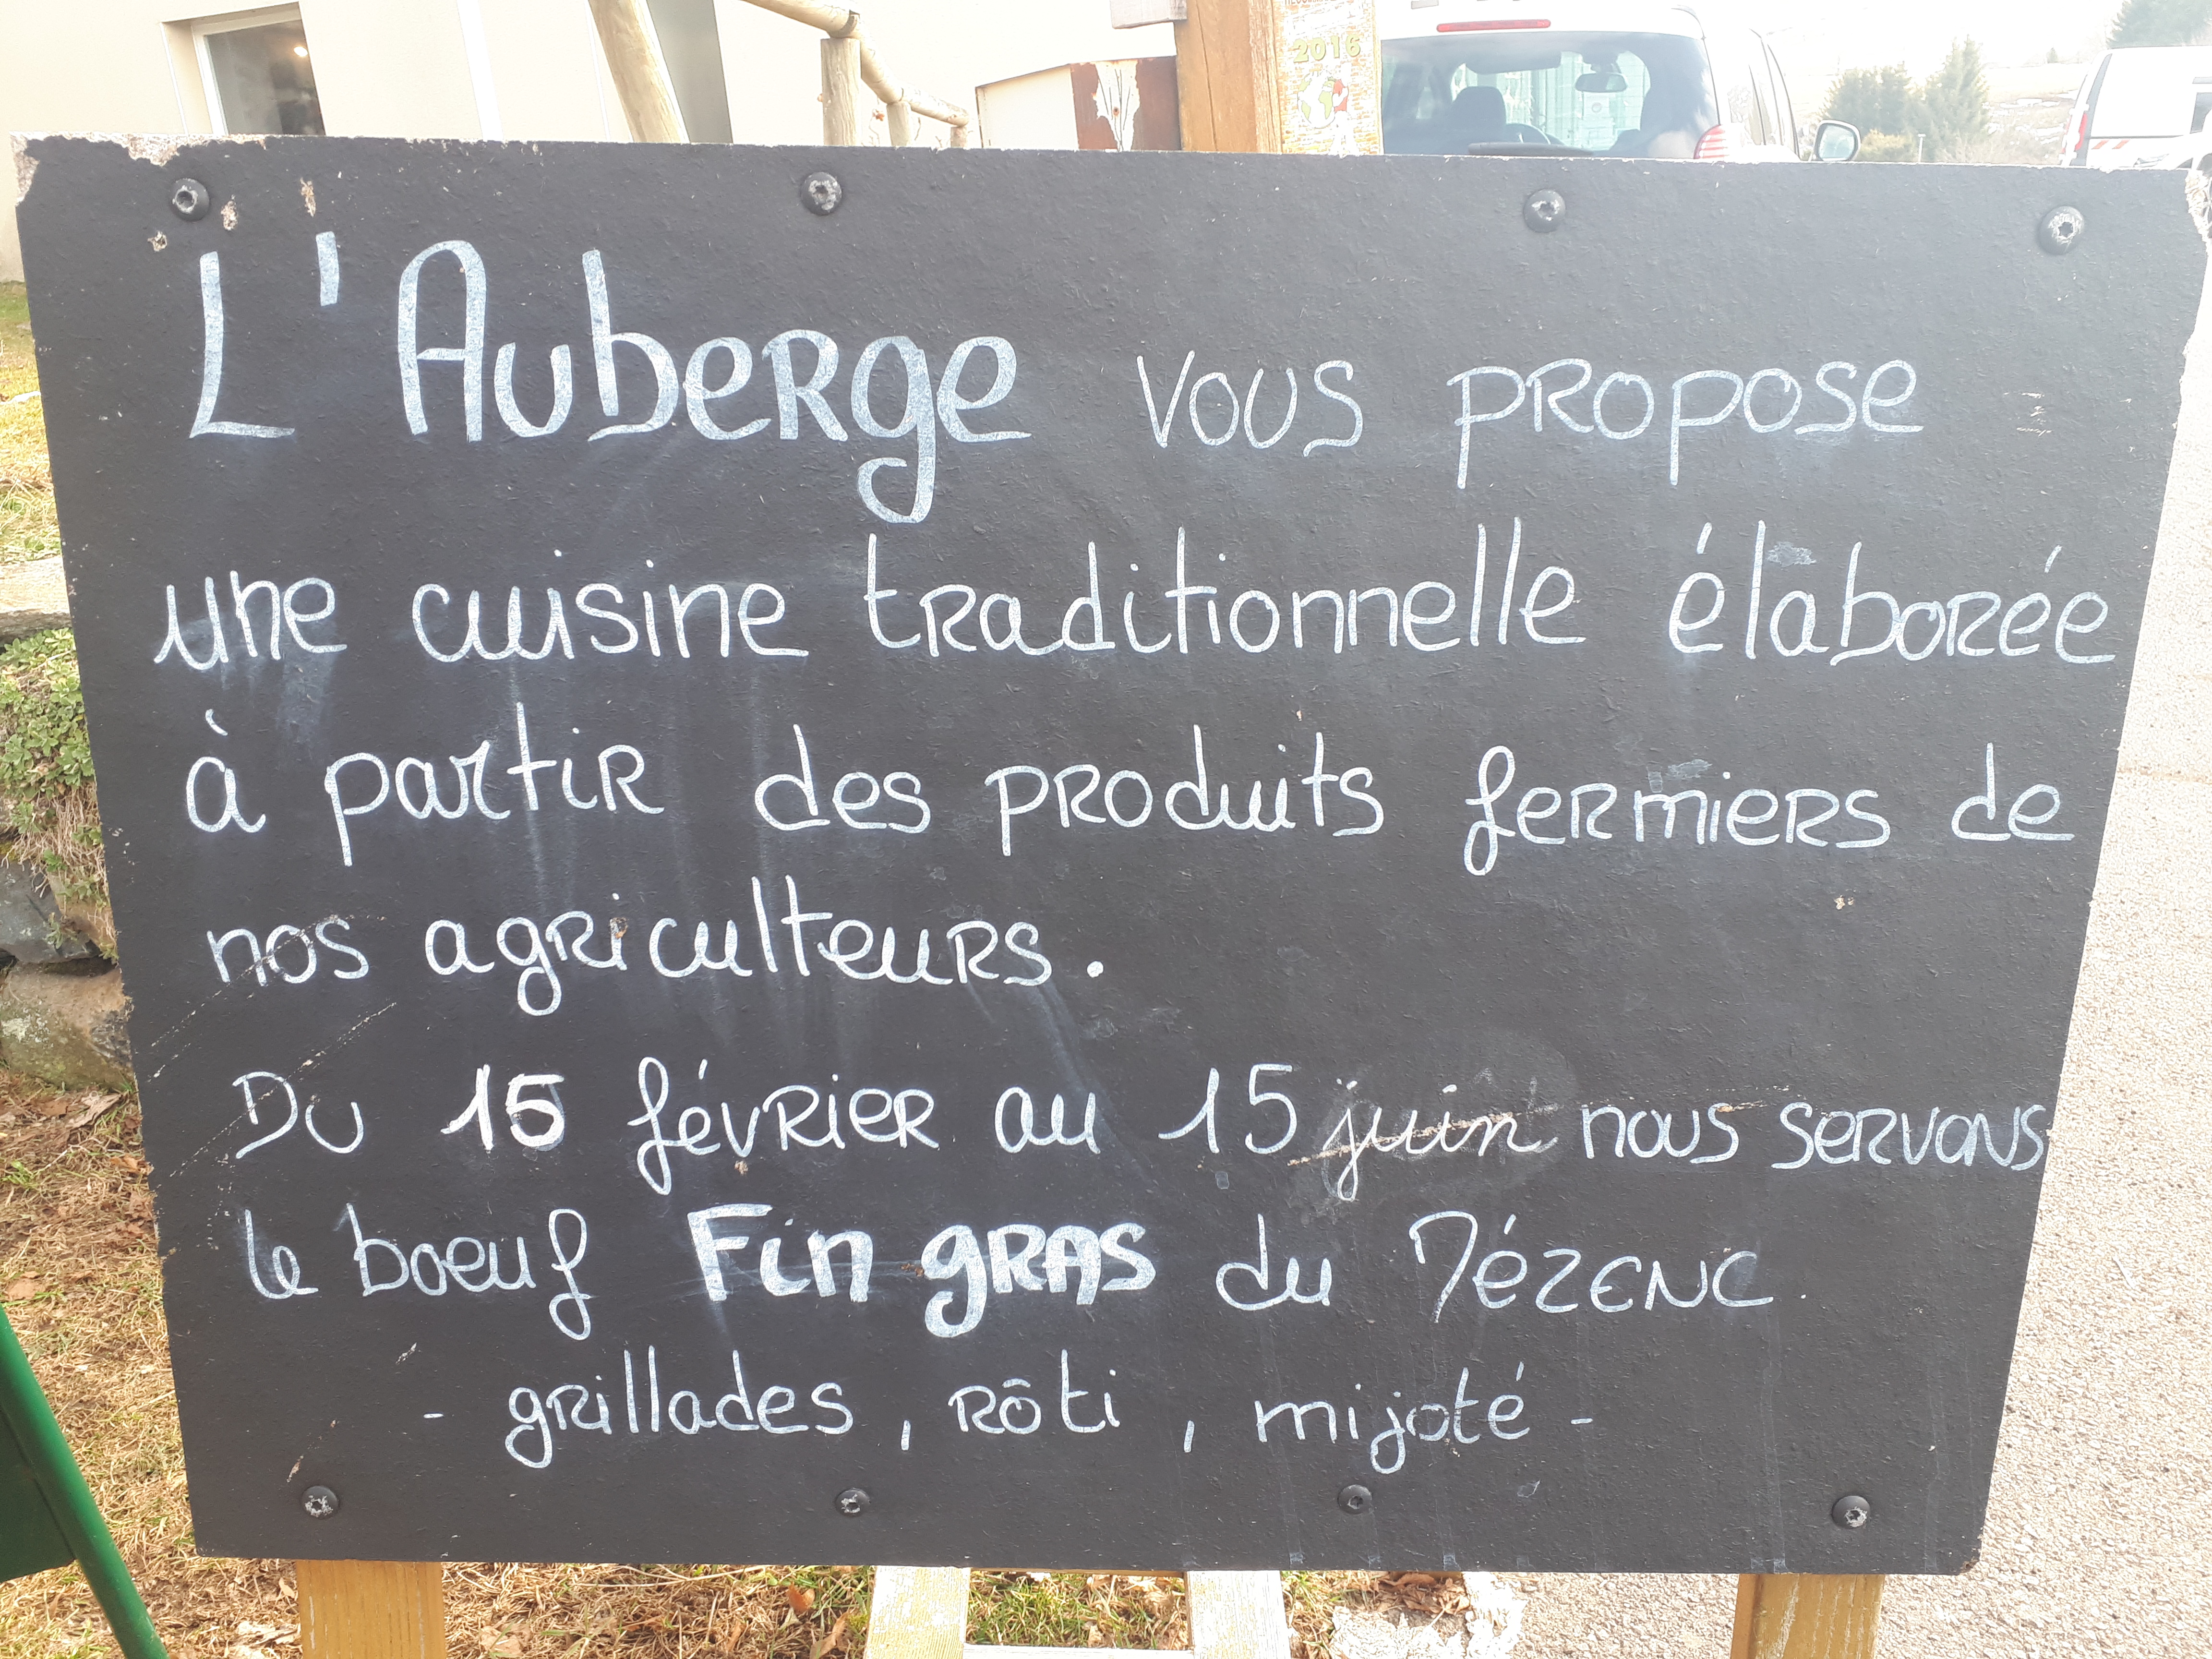 2016
L'Auberge vous propose
une cuisine traditionnelle élaborée
à partir des produits fermiers de
nos agriculteurs.
Du 15 février au 15 juin nous servons
le boeuf Fin gras du Mézenc.
- grillades, rôti, mijoté -